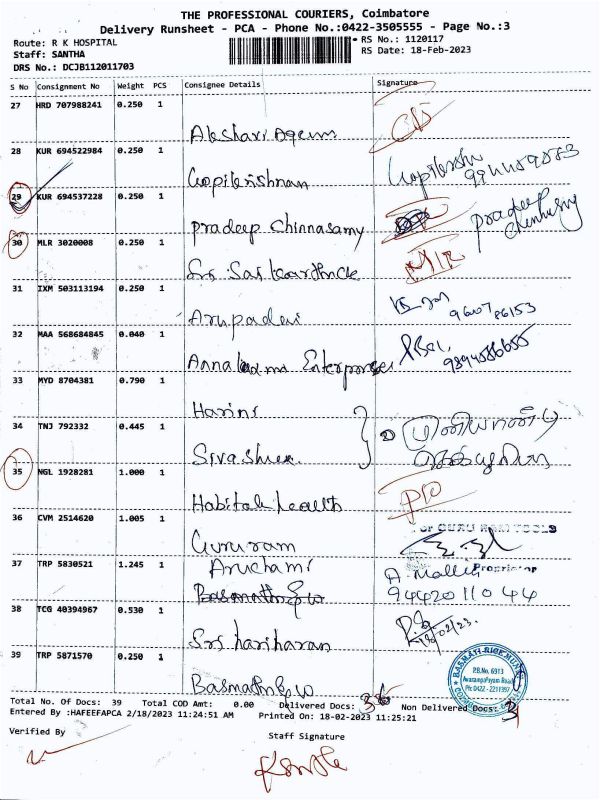 THE PROFESSIONAL COURIERS, Coimbatore
Delivery Runsheet - PCA - Phone No.:0422-3505555 - Page No.:3
Route: R K HOSPITAL
RS No.: 1120117
Staff: SANTHA
RS Date: 18-Feb-2023
DRS No.: DCJB112011703
S No Consignment No Weight PCS Consignee Details Signature
27 HRD 707988241 0.250 1
28 KUR 694522984 0.250 1
Gopikrishnan
29 KUR 694537228 0.250 1
Pradeep Chinnasamy Pradeep
30 MLR 3020008 0.250 1
31 IXM 503113194 0.250 1
Arupadevi
32 MAA 568684845 0.040 1
Enterprises
33 MYD 8704381 0.790 1
Harini
34 TNJ 792332 0.445 1
முனியாண்டி
35 NGL 1928281 1.000 1
Habitat health
36 CVM 2514620 1.005 1
Gururam
For GURU RAM TOOLS
Proprietor
37 TRP 5830521 1.245 1
9442011044
38 TCG 40394967 0.530 1
Sri hariharan 18/02/23.
39 TRP 5871570 0.250 1
P.B.No. 6913
Avarampalayam Road
Ph: 0422 - 2211397
Total No. Of Docs: 39 Total COD Amt: 0.00 Delivered Docs: 36 Non Delivered Docs: 3
Entered By :HAFEEFAPCA 2/18/2023 11:24:51 AM Printed On: 18-02-2023 11:25:21
Verified By Staff Signature